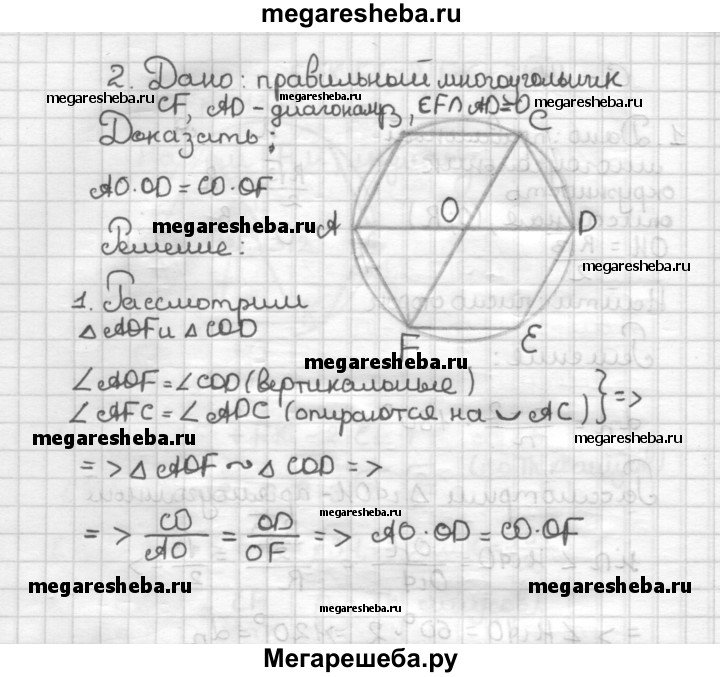 megaresheba.ru
2. Дано: правильный многоугольник
megaresheba.ru CF, AD - диагонали, megaresheba.ru CF∩AD=O megaresheba.ru
Доказать:
C
AO·OD = CO·OF
A O D
megaresheba.ru
Решение:
megaresheba.ru
1. Рассмотрим
△AOF и △COD
F E
megaresheba.ru
∠AOF = ∠COD (вертикальные)
∠AFC = ∠ADC (опираются на ◡AC) } =>
megaresheba.ru megaresheba.ru
=> △AOF ~ △COD =>
megaresheba.ru
=> CO/AO = OD/OF => AO·OD = CO·OF
megaresheba.ru megaresheba.ru
megaresheba.ru
Мегарешеба.ру